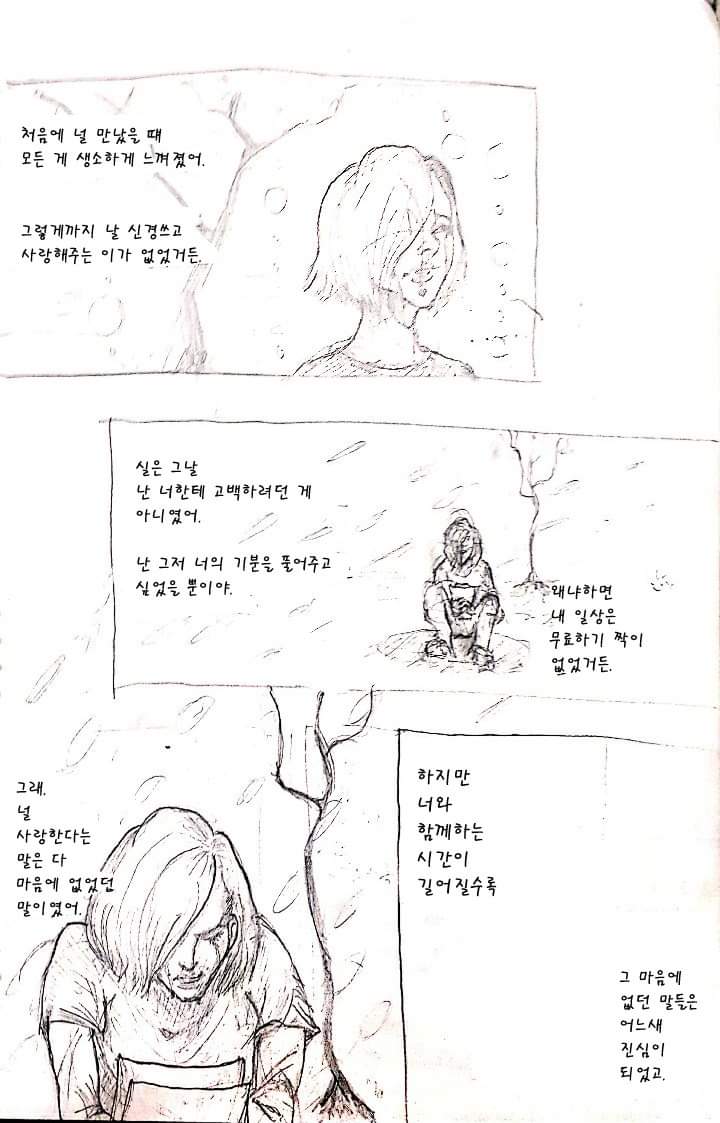 처음에 널 만났을 때
모든 게 생소하게 느껴졌어.
그렇게까지 날 신경쓰고
사랑해주는 이가 없었거든.
실은 그날
난 너한테 고백하려던 게
아니였어.
난 그저 너의 기분을 풀어주고
싶었을 뿐이야.
왜냐하면
내 일상은
무료하기 짝이
없었거든.
그래.
널
사랑한다는
말은 다
마음에 없었던
말이였어.
하지만
너와
함께하는
시간이
길어질수록
그 마음에
없던 말들은
어느새
진심이
되었고.